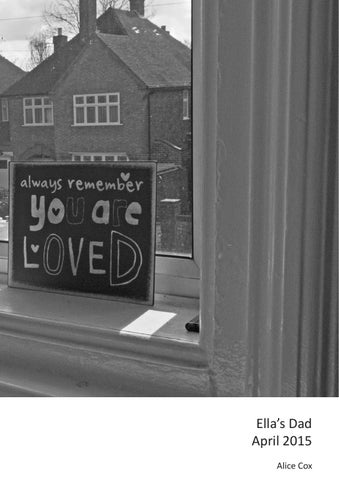 always remember
you are
LOVED
Ella's Dad
April 2015
Alice Cox